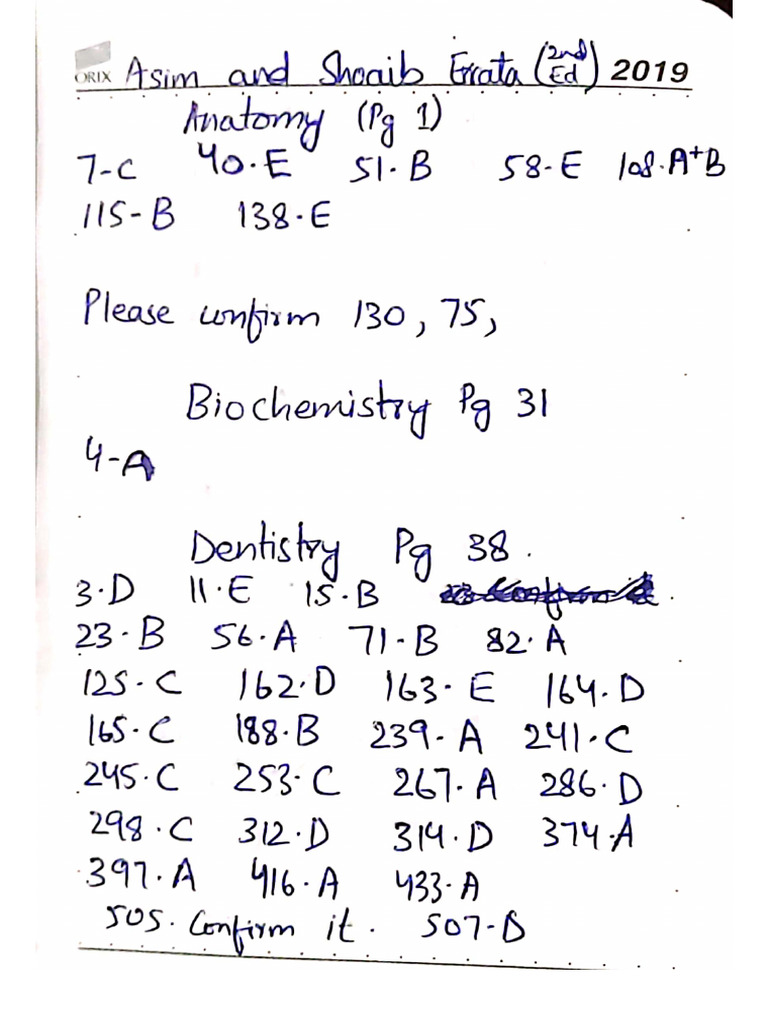 ORIX Asim and Shoaib Errata (2nd Ed) 2019
Anatomy (Pg 1)
7-C 40.E 51.B 58-E 108.A+B
115-B 138.E
Please confirm 130, 75,
Biochemistry Pg 31
4-A
Dentistry Pg 38.
3.D 11.E 15.B
23.B 56.A 71-B 82.A
125.C 162.D 163.E 164.D
165.C 188.B 239.A 241.C
245.C 253.C 267.A 286.D
298.C 312.D 314.D 374.A
397.A 416.A 433.A
505. Confirm it. 507-D